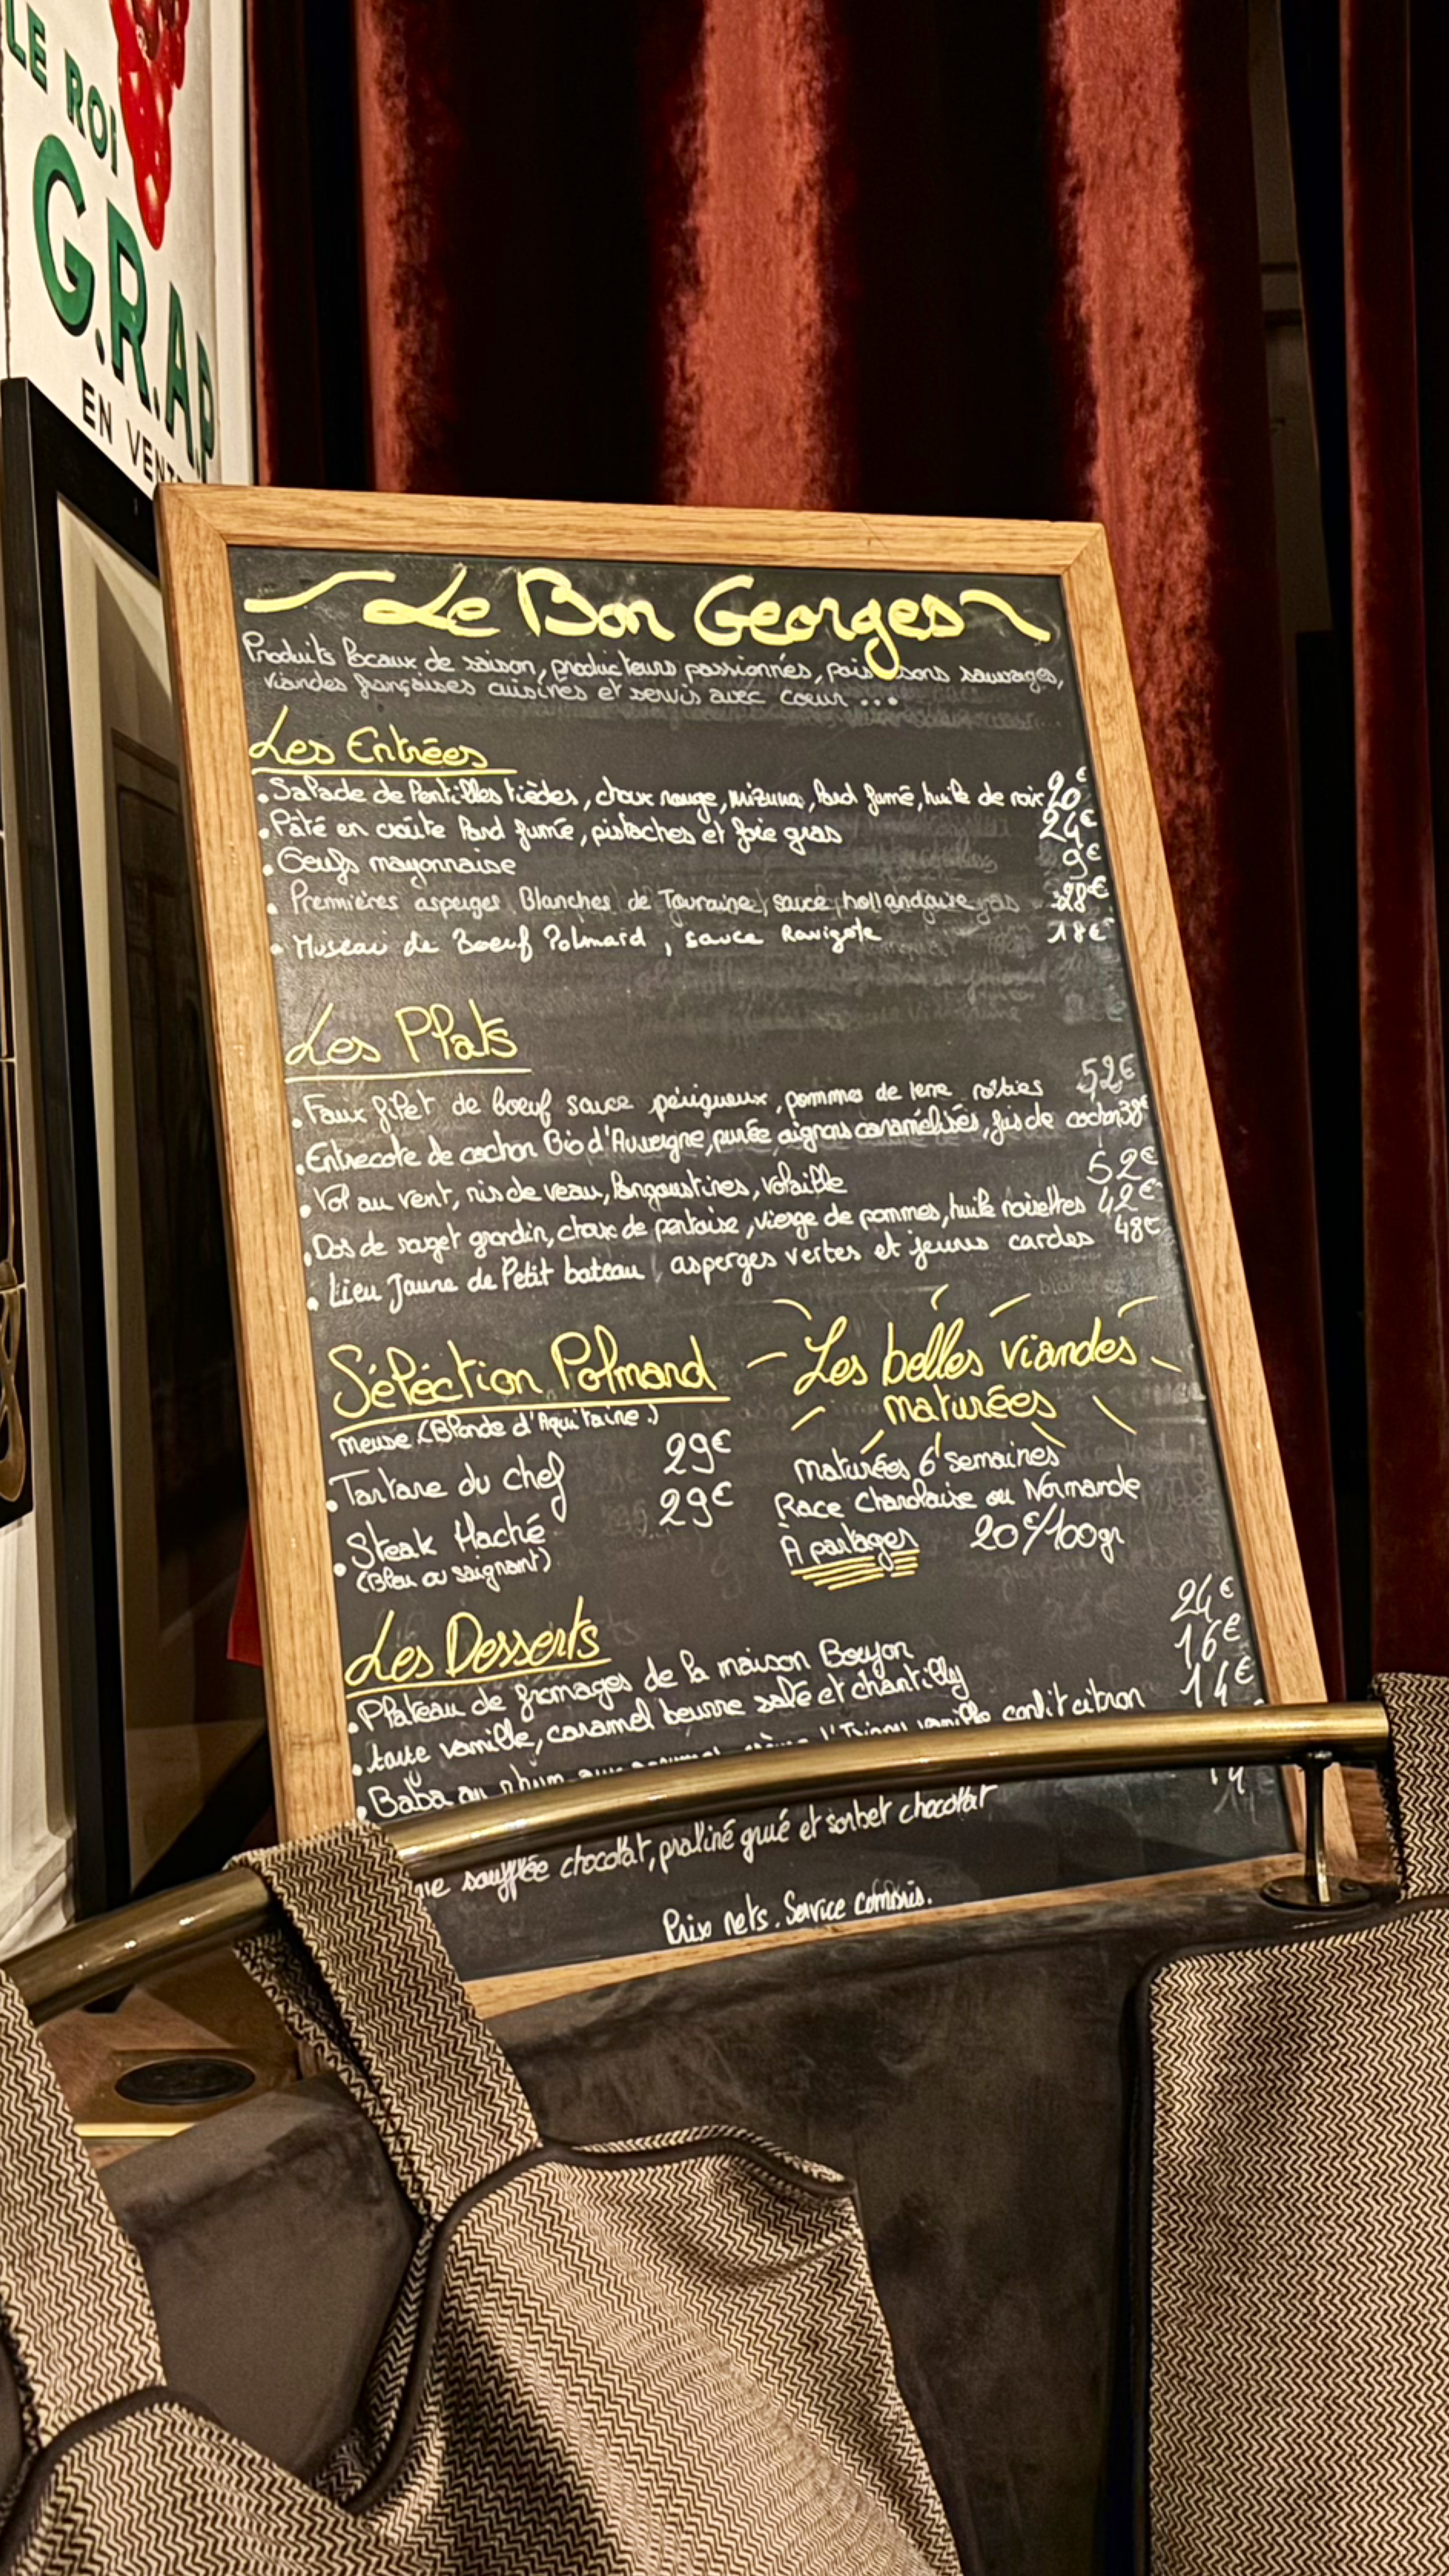 LE ROI
G.R.A.P
EN VENT
Le Bon Georges
Produits locaux de saison, producteurs passionnés, poissons sauvages,
viandes françaises cuisinés et servis avec coeur ...
Les Entrées
• Salade de lentilles tièdes, choux rouge, mizuna, lard fumé, huile de noix 20€
• Pâté en croûte lard fumé, pistaches et foie gras 24€
• Oeufs mayonnaise 9€
• Premières asperges Blanches de Touraine, sauce hollandaise 28€
• Museau de Boeuf Polmard, sauce Ravigote 18€
Les Plats
• Faux filet de boeuf sauce périgueux, pommes de terre roties 52€
• Entrecote de cochon Bio d'Auvergne, purée, oignons caramélisés, jus de cochon 38€
• Vol au vent, ris de veau, langoustines, volaille 52€
• Dos de rouget grondin, choux de pontoise, vierge de pommes, huile noisettes 42€
• Lieu Jaune de Petit bateau, asperges vertes et jeunes cardes 48€
Séléction Polmard
Meuse (Blonde d'Aquitaine.)
• Tartare du chef 29€
• Steak Haché 29€
(Bleu ou saignant)
Les belles viandes
maturées
maturées 6 semaines
Race Charolaise ou Normande
À partager 20€/100gr
Les Desserts
• Plateau de fromages de la maison Bouyon 24€
• tarte vanille, caramel beurre salé et chantilly 16€
• Baba au rhum vanille confit citron 14€
soufflée chocolat, praliné grué et sorbet chocolat 14
Prix nets. Service compris.